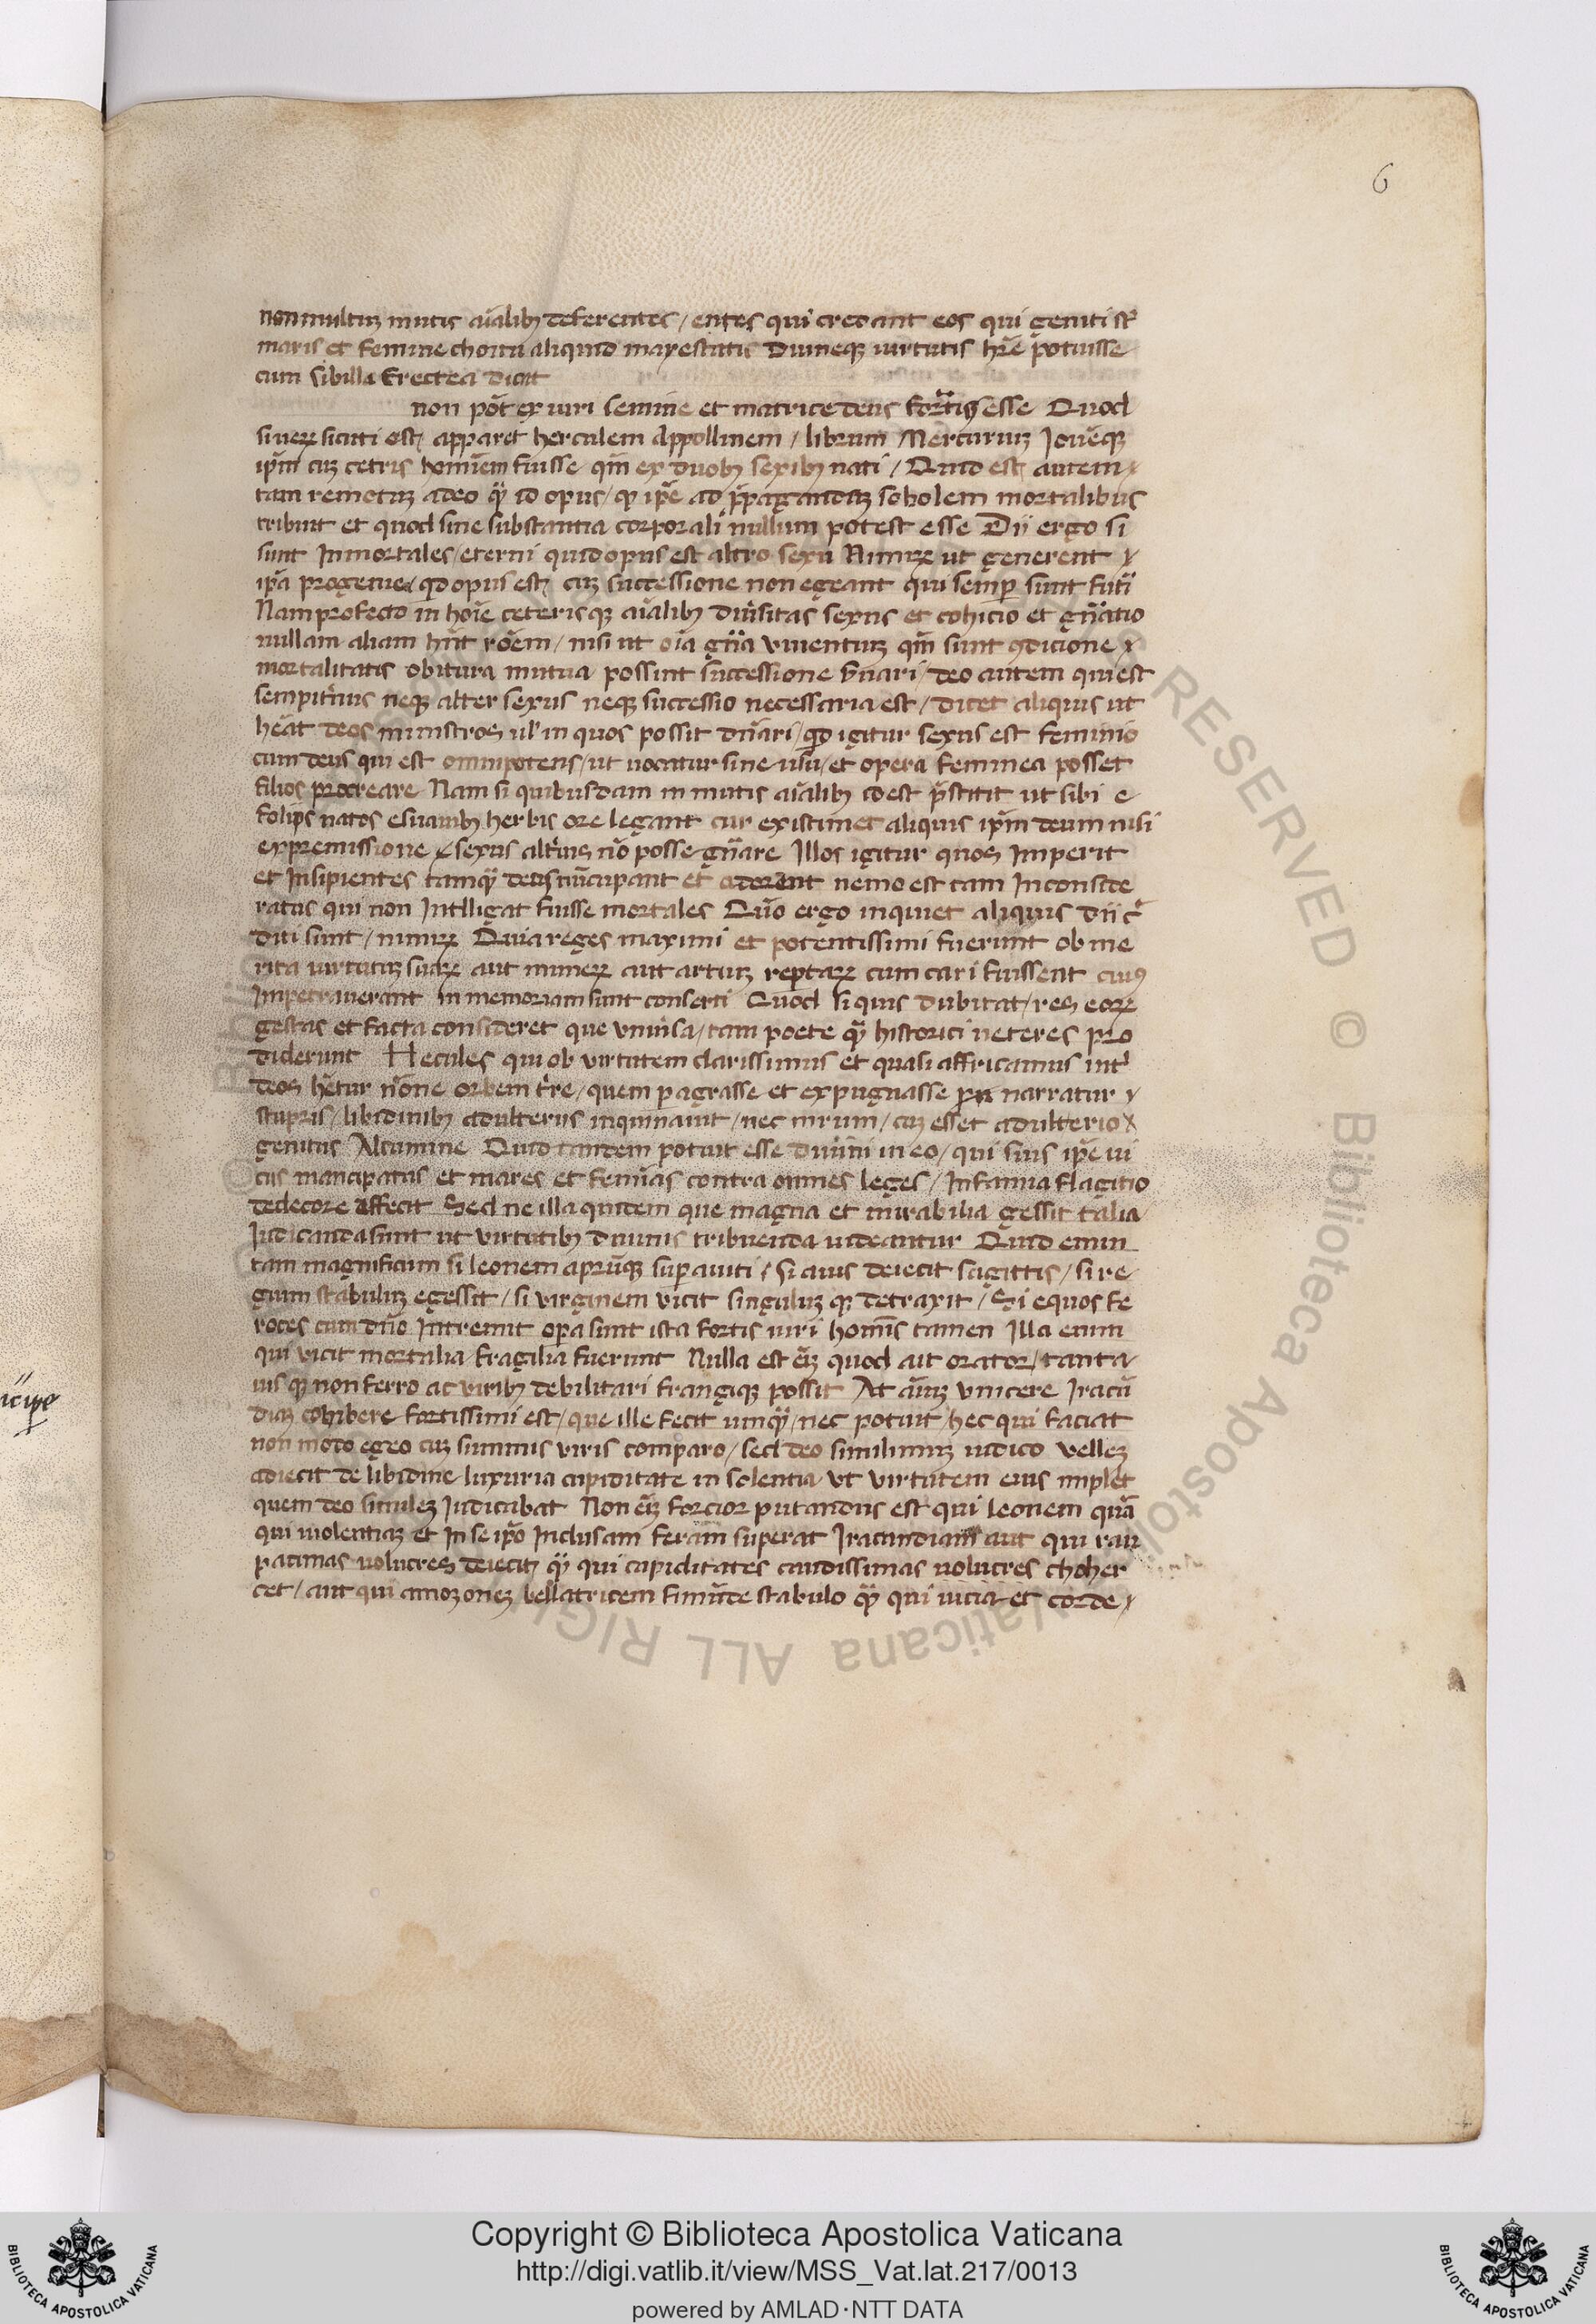 6
non multuz mutis aĩalibꝫ deferentes / entes qui credant eos qui geniti st̃
maris et femine choitu aliquid mayestatis Diuineqꝫ uirtutis hr̃e potuisse
cum sibilla Erectea dicat
non põt ex uiri semine et matrice deus fortis esse Quod
si uerꝝ sicuti est apparet herculem Appollinem / librum Mercuriuz Jouẽqꝫ
ip̃m cuz cetris hominem fuisse qm̃ ex duobꝫ sexibꝫ nati / Quid est autem
tam remotuz a deo qꝫ id opus / qꝫ ip̃e ad p̃pagandaz sobolem mortalibus
tribuit et quod sine substantia corporali nullum potest esse Dii ergo si
sunt Inmortales / eterni quid opus est altro sexu Nimirꝝ ut generent
ip̃a progenie qd opus est cuz successione non egeant qui semꝑ sunt futi
Nam profecto in hoĩe ceterisqꝫ aĩalibꝫ diũsitas sexus et cohicio et gñatio
nullam aliam hñt rõem / nisi ut oĩa gñã uiuentuz qm̃ sunt ꝯdicione
mortalitatis obitura mutua possint successione ꝯ̃uari / deo autem qui est
sempitnus neqꝫ alter sexus neqꝫ successio necessaria est / dicet aliquis ut
heat deos ministros ul' in quos possit dñari / qd igitur sexus est feminio
cum deus qui est omnipotens / ut uocatur sine usu / et opera feminea posset
filios procreare Nam si quibusdam in mutis aĩalibꝫ id est p̃stitit ut sibi e
folijs natos esuauibꝫ herbis ore legant cur existimet aliquis ip̃m deum nisi
ex premissione sexus altius nõ posse gñare Illos igitur quos Imperit
et Insipientes tamqꝫ deus nũcupant et adorant nemo est tam Inconside
ratus qui non Intelligat fuisse mortales Quõ ergo inquiet aliquis dii c̃
diti sunt / nimirꝝ Quia reges maximi et potentissimi fuerunt ob me
rita uirtutuz suaꝝ aut munerꝝ aut artuz reptaꝝ cum cari fuissent ciuiꝫ
Impetrauerant in memoriam sunt conserti Quod si quis dubitat / res eoꝝ
gestas et facta consideret que uniũsa / tam poete qꝫ historici ueteres pro
diderunt Hecules qui ob virtutem clarissimus et quasi affricanus int̃
deos hetur nõne orbem tre / quem pagrasse et expugnasse narratur
stupris / libidinibꝫ adulteriis inquinauit / nec mirum / cuz esset adulterio
genitus Alcumine Quid tandem potuit esse diuini in eo / qui suis ip̃e ui
ciis mancipatus et mares et feminas contra omnes leges / Infamia flagitio
dedecore affecit Sed ne illa quidem que magna et mirabilia gessit talia
Iudicanda sunt ut virtutibꝫ diuinis tribuenda uideantur Quid enim
tam magnificum si leonem aprũqꝫ supauiti / si auis deiecit sagittis / si re
gium stabuluz egessit / si virginem vicit singuluz qꝫ detraxit / Si equos fe
roces cum dño Intremit opa sunt ista fortis uiri hominis tamen Illa enim
qui vicit mortalia fragilia fuerunt Nulla est eĩz quod ait orator / tanta
uis qꝫ non ferro ac viribꝫ debilitari frangiqꝫ possit At aĩuz vincere Iracũ
diaz cohibere fortissimi est / que ille fecit umqꝫ / nec potuit / hec qui faciat
non modo egeo cuz summis viris comparo / sed deo similimuz iudico vellez
adiecit de libidine luxuria cupiditate insolentia ut virtutem eius implet
quem deo similez Iudicabat Non eĩz forcior putandus est qui leonem quã
qui uiolentiaz et In se ip̃o Inclusam feram superat Iracundiam aut qui rau
pacimas uolucres deiecit qꝫ qui cupiditates cuudissimas uolucres choher
cet / aut qui amozonez bellatricem fimũde stabulo qꝫ qui uicia et corde
Copyright © Biblioteca Apostolica Vaticana
http://digi.vatlib.it/view/MSS_Vat.lat.217/0013
powered by AMLAD·NTT DATA
BIBLIOTECA APOSTOLICA VATICANA
BIBLIOTECA APOSTOLICA VATICANA